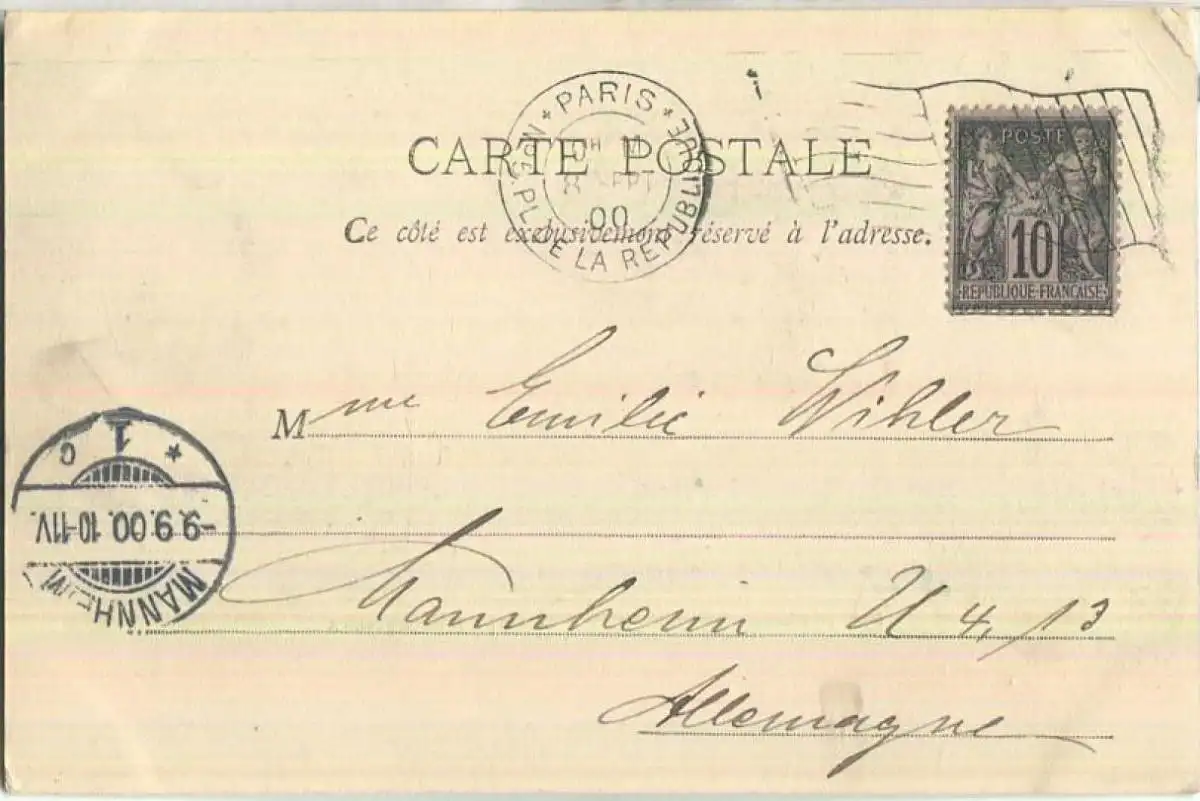 PARIS
DE LA REPUBLIQUE
00
CARTE POSTALE
Ce côté est exclusivement réservé à l'adresse.
POSTE
10
REPUBLIQUE FRANÇAISE
Mme Emilie Wihler
Mannheim U 4, 13
Allemagne
MANNHEIM
-9.9.00.10-11V.
1
c